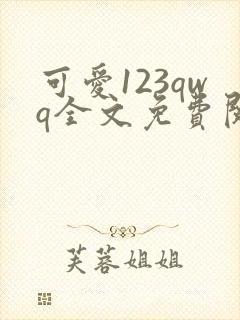 可愛123qw
q全文免費閱
芙蓉姐姐